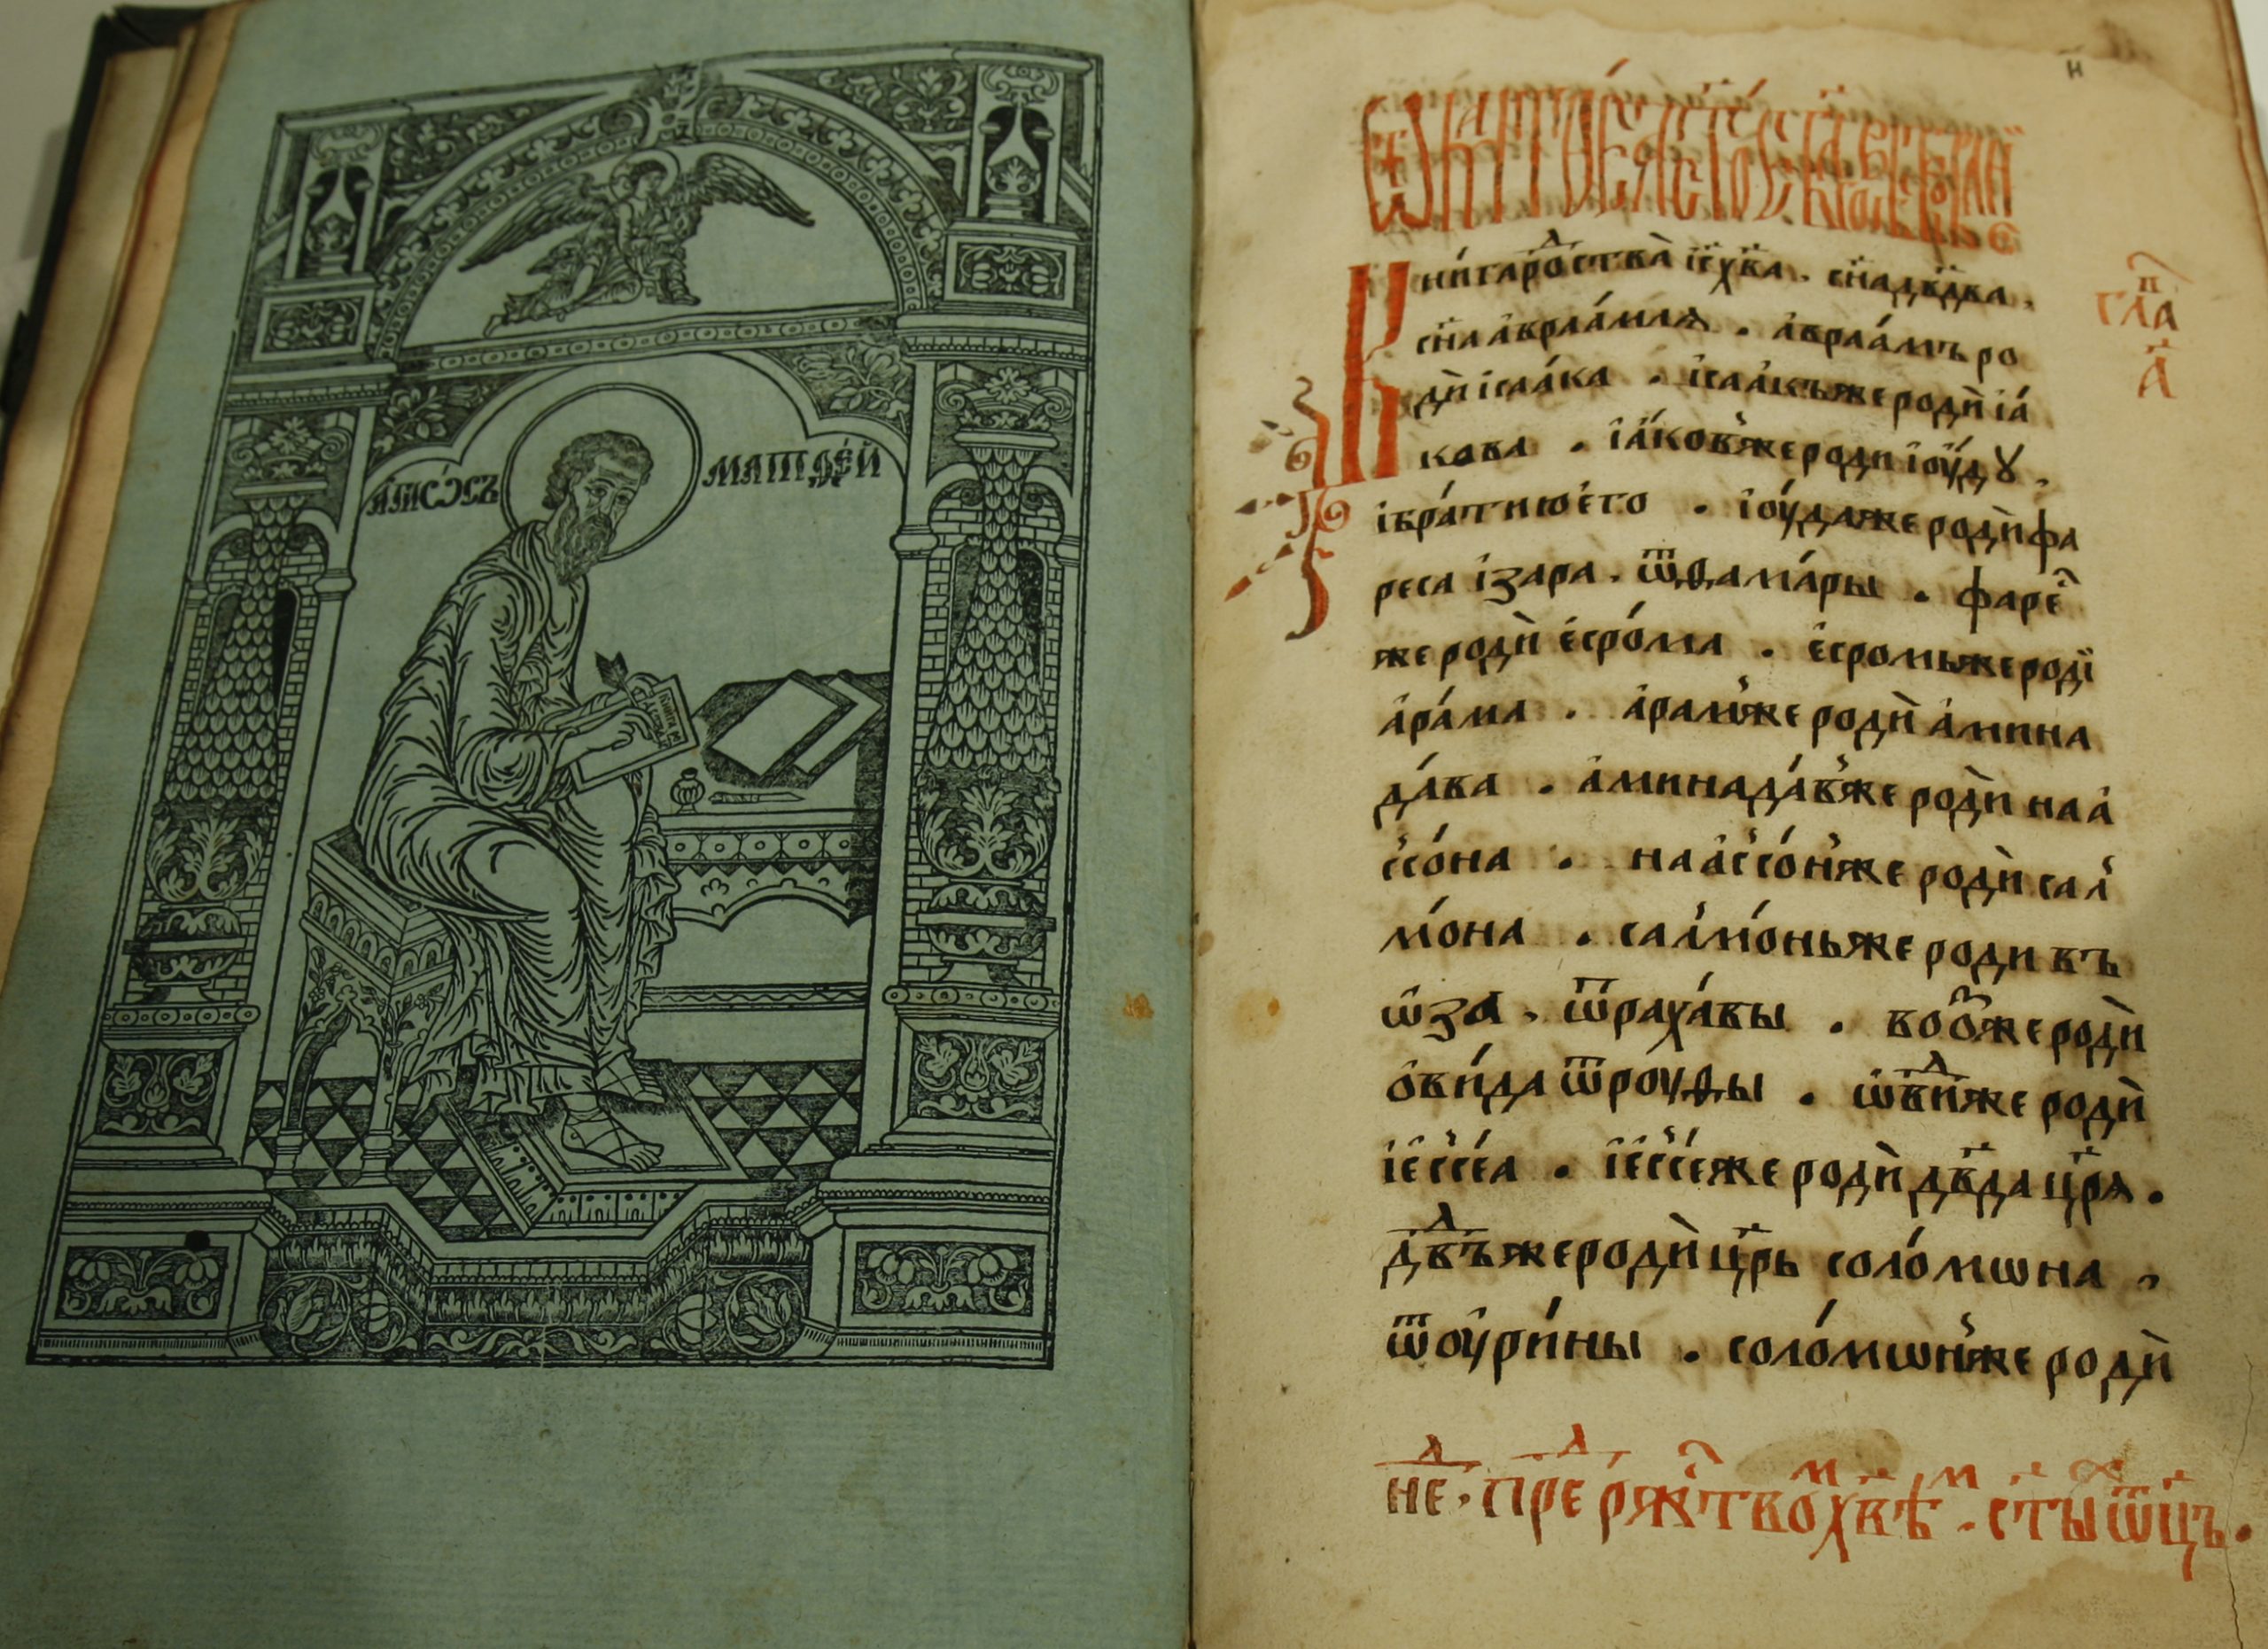 АПⷭ҇ЛЪ МАТѲЕ́Й
н҃
К
ни́гаро́ⷣствава̀ і҆с҃хв҃а . сн҃адв҃два .
сн҃аа҆враа́мля . а҆враа́мъро
дѝ і҆саа́ка . і҆саа́къжероди̇̀ і҆а́
кова . і҆а́ковⸯжероди і҆ꙋ́дꙋ .
і҆бра́тиюе҆го . і҆оу́дажероди̇̀фа
реса і҆зара . ѿѳама́ры . фаре́ⷭ
жеродѝ е҆сро́ма . е҆сромьжероді̀
а҆ра́ма . а҆рамⸯжеродѝ а҆мина
да́ва . а҆минада́вⸯжеродѝ наа҆
ссо́на . наа҆ссо́нⸯжеродѝ салⸯ
мо́на . салⸯмо́ньжероди въ
ѡ҆за . ѿраха́вы . воо́ⷥжеродѝ
о҆ви́да ѿроуѳы . ѡ҆ви́ⷣжеродѝ
і҆ессе́а . і҆ессе́жеродѝ дв҃да цр҃я .
дв҃ⷣъжеродѝ цр҃ь соло́мѡна ,
ѿоурі́ны . соло́мѡнⸯжеродѝ
гла̑ⷡ
а҃
неⷣ . преⷣ рⷭ҇жтвоⷨ хв҃ѣⷨ . ст҃ыⷯ ѿц҃ъ .